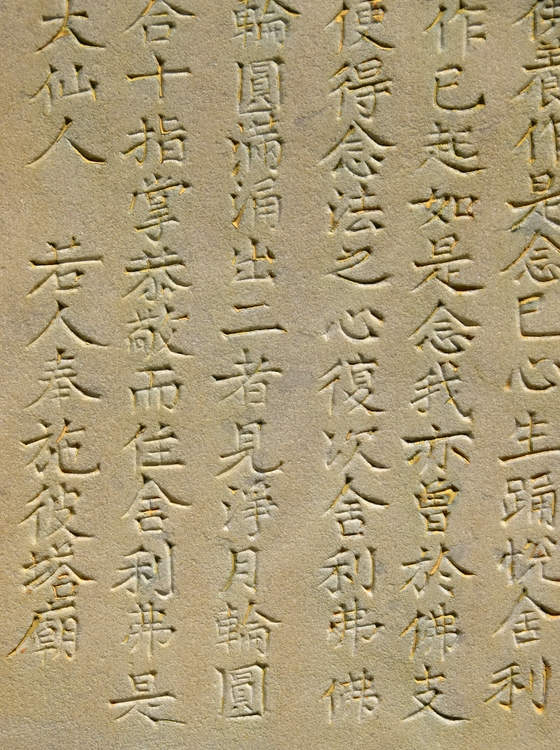 養作是念已心生踊悅舍利
作已起如是念我亦曾於佛支
便得念法之心復次舍利弗佛
輪圓滿涌出二者見淨月輪圓
合十指掌恭敬而住舍利弗是
大仙人 若人奉施彼塔廟